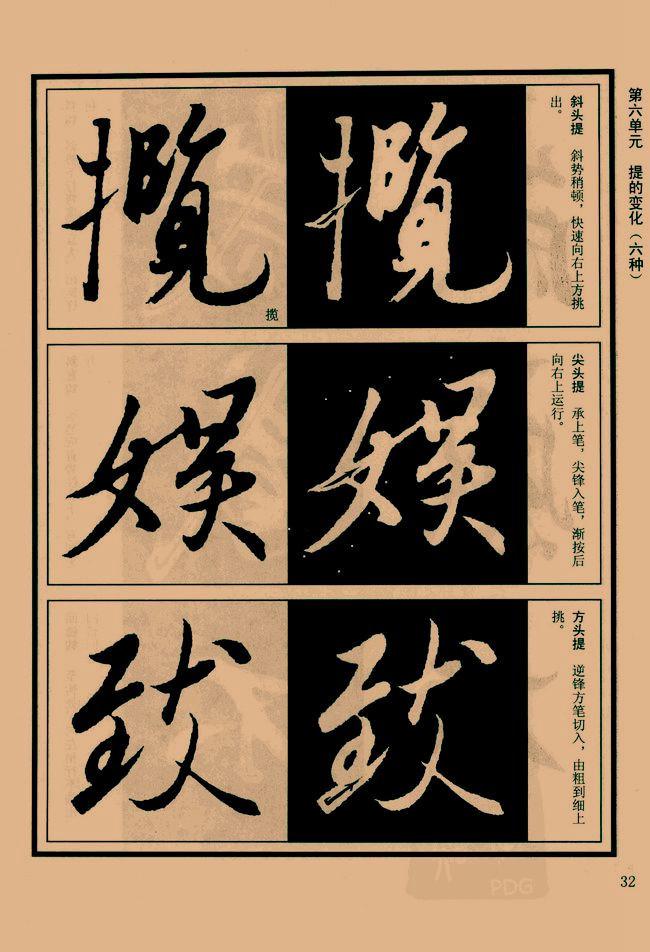 第六单元　提的变化（六种）
斜头提　斜势稍顿，快速向右上方挑
出。
揽
揽
揽
尖头提　承上笔，尖锋入笔，渐按后
向右上运行。
娱
娱
方头提　逆锋方笔切入，由粗到细上
挑。
致
致
32
PDG